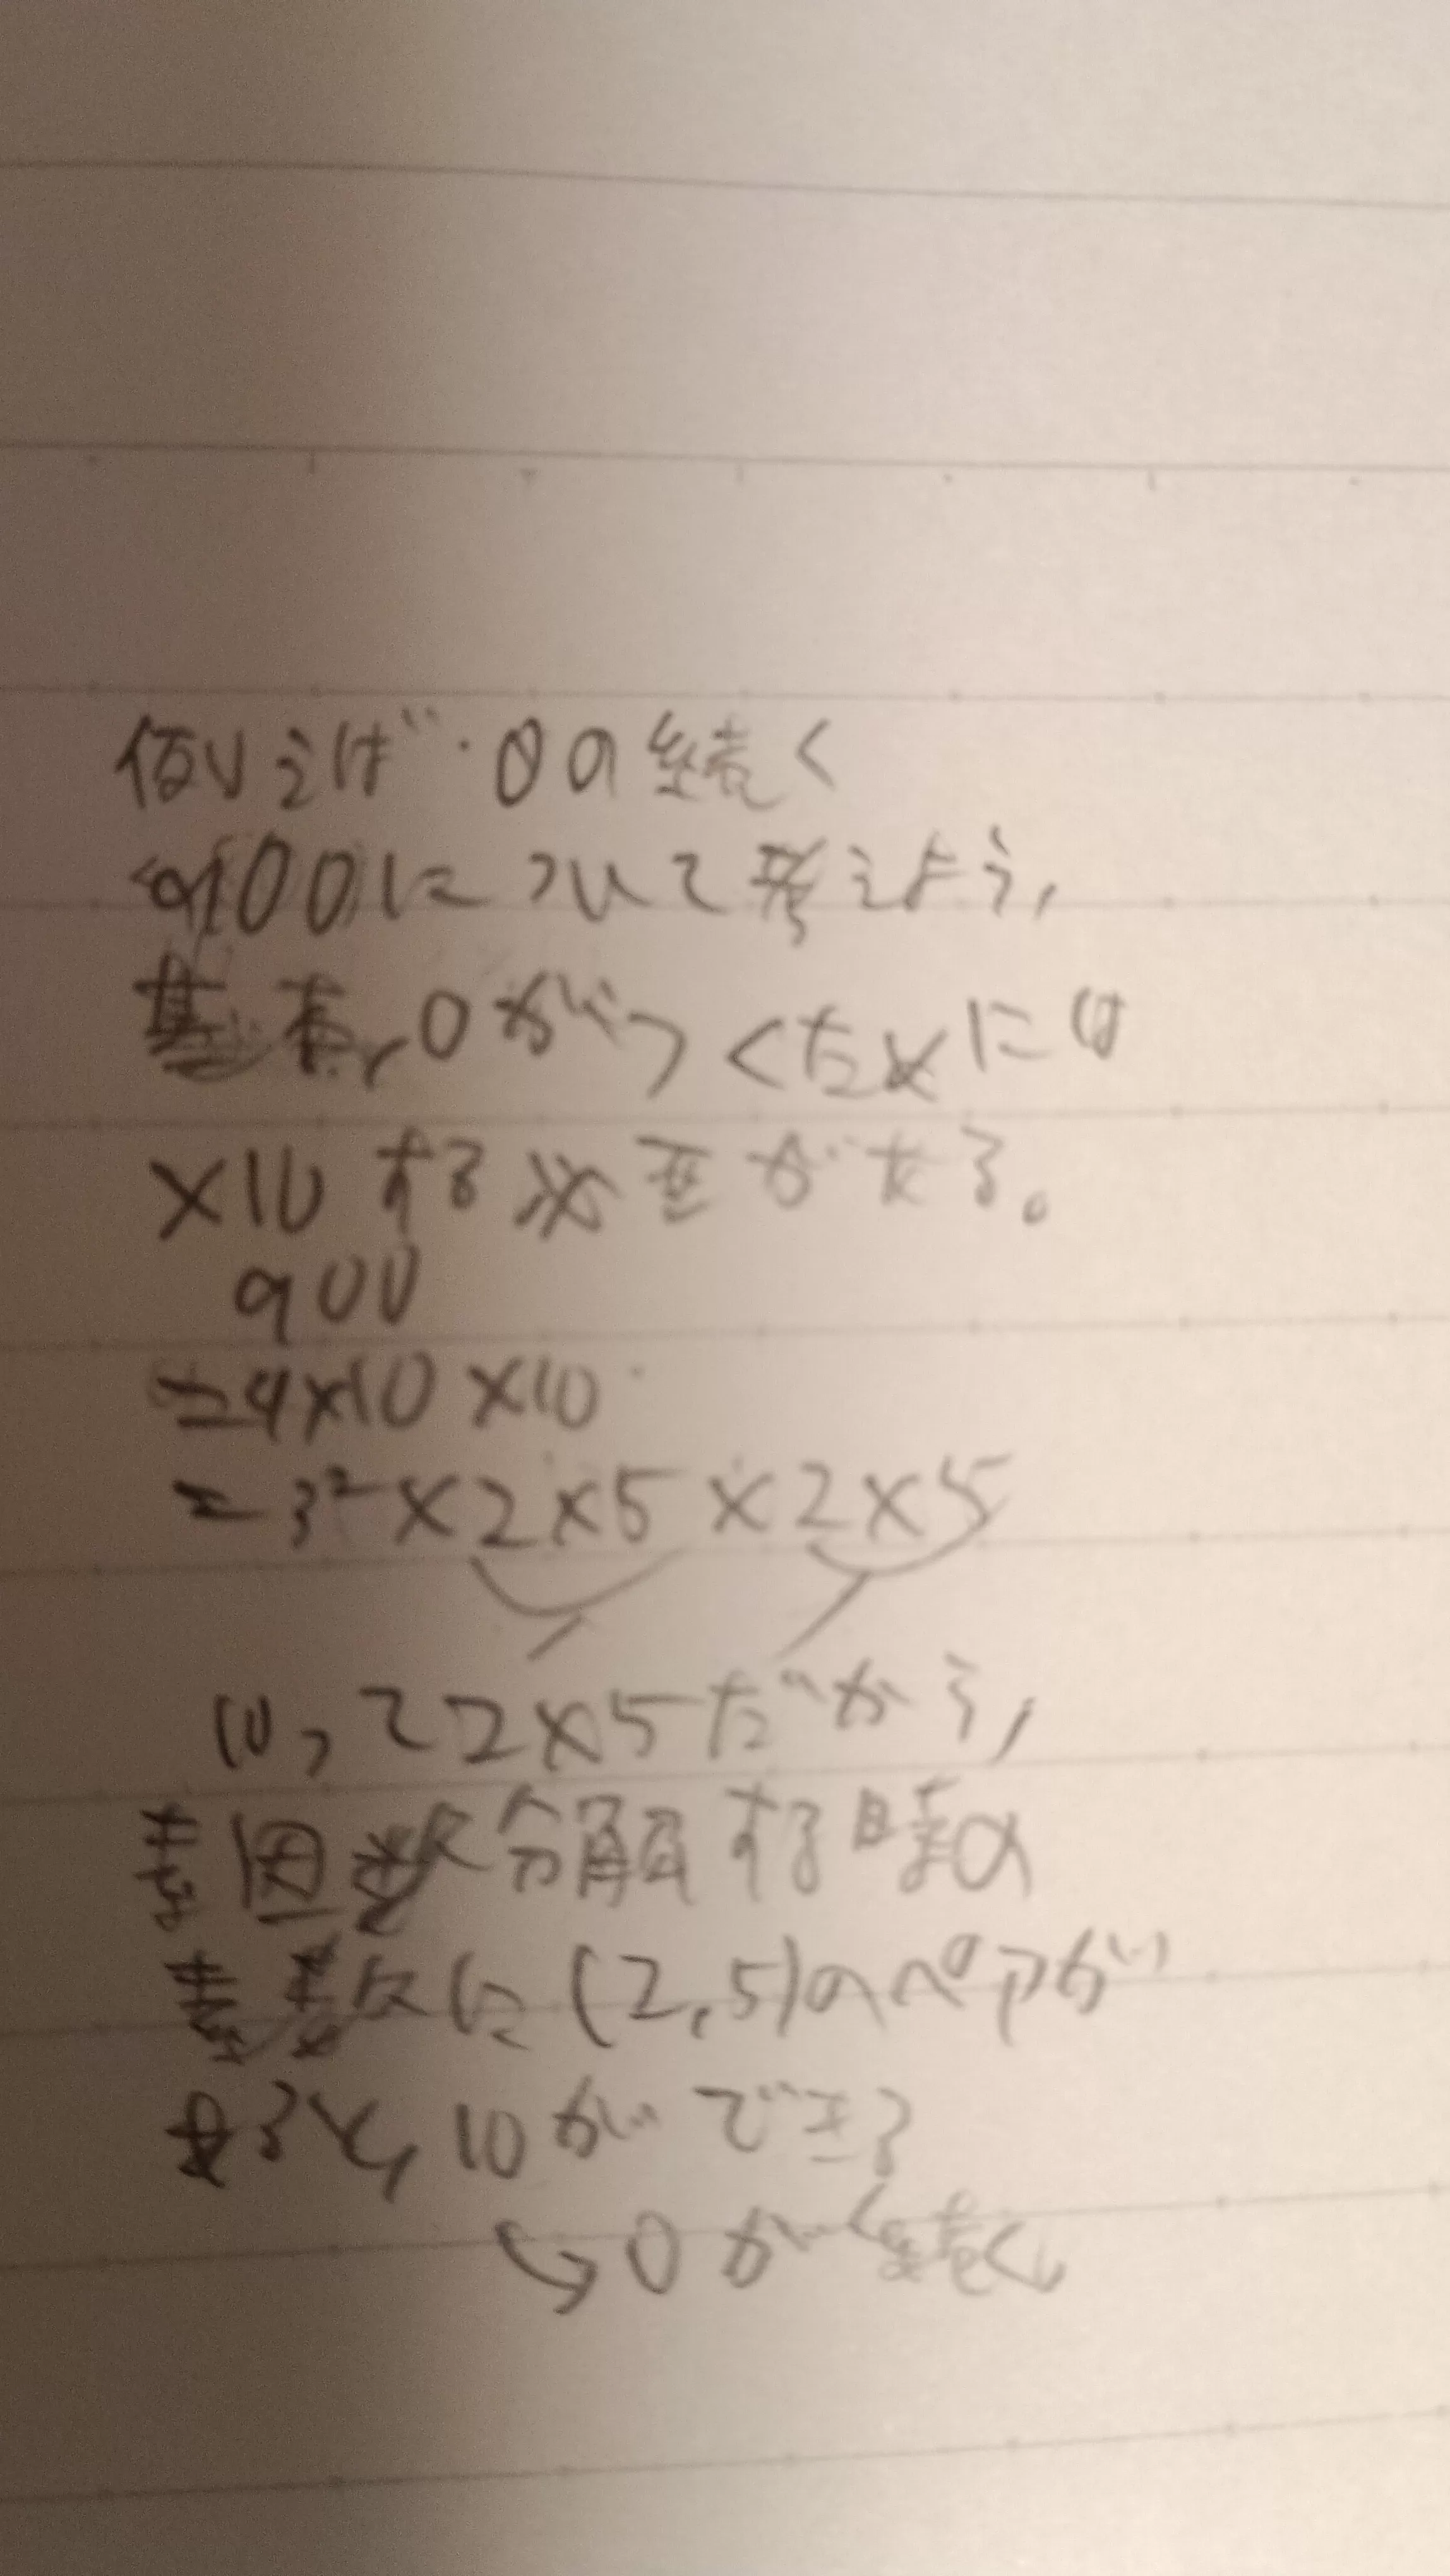 例えば・0の続く
900について考えよう,
基本,0がつくためには
×10する必要がある。
900
=9×10×10
=3²×2×5×2×5
10って2×5だから,
素因数分解する時の
素数に(2,5)のペアが
あると,10ができる
↪0が続く。